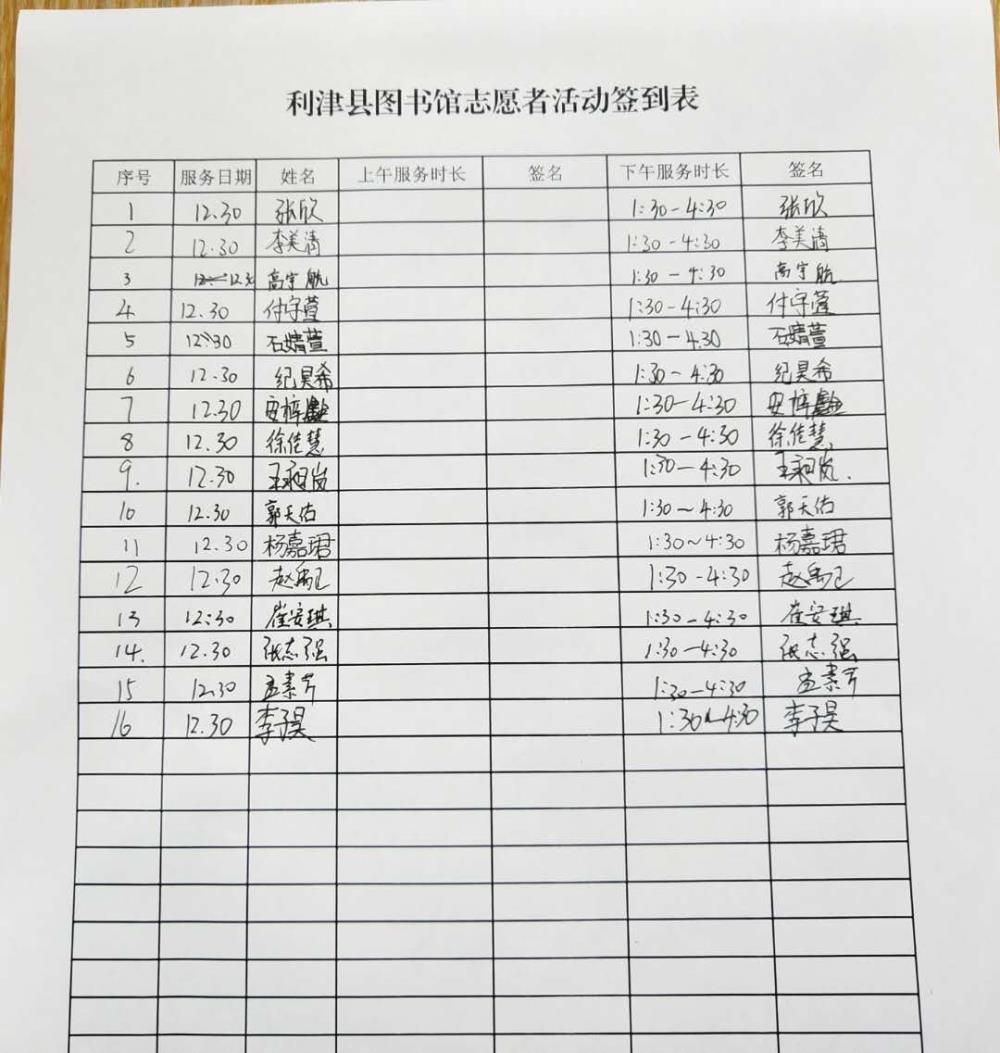 利津县图书馆志愿者活动签到表
序号 服务日期 姓名 上午服务时长 签名 下午服务时长 签名
1 12.30 张欣 1:30-4:30 张欣
2 12.30 李美清 1:30-4:30 李美清
3 12.30 高宇航 1:30-4:30 高宇航
4 12.30 付守萱 1:30-4:30 付守萱
5 12.30 石婧萱 1:30-4:30 石婧萱
6 12.30 纪昊希 1:30-4:30 纪昊希
7 12.30 安梓 1:30-4:30 安梓
8 12.30 徐佳慧 1:30-4:30 徐佳慧
9. 12.30 王 岚 1:30-4:30 王 岚.
10 12.30 郭天佑 1:30~4:30 郭天佑
11 12.30 杨嘉珺 1:30~4:30 杨嘉珺
12 12.30 赵禹 1:30-4:30 赵禹
13 12:30 崔安琪 1:30-4:30 崔安琪
14. 12.30 张志强 1:30-4:30 张志强
15 12.30 孟素芳 1:30-4:30 孟素芳
16 12.30 李子昊 1:30~4:30 李子昊